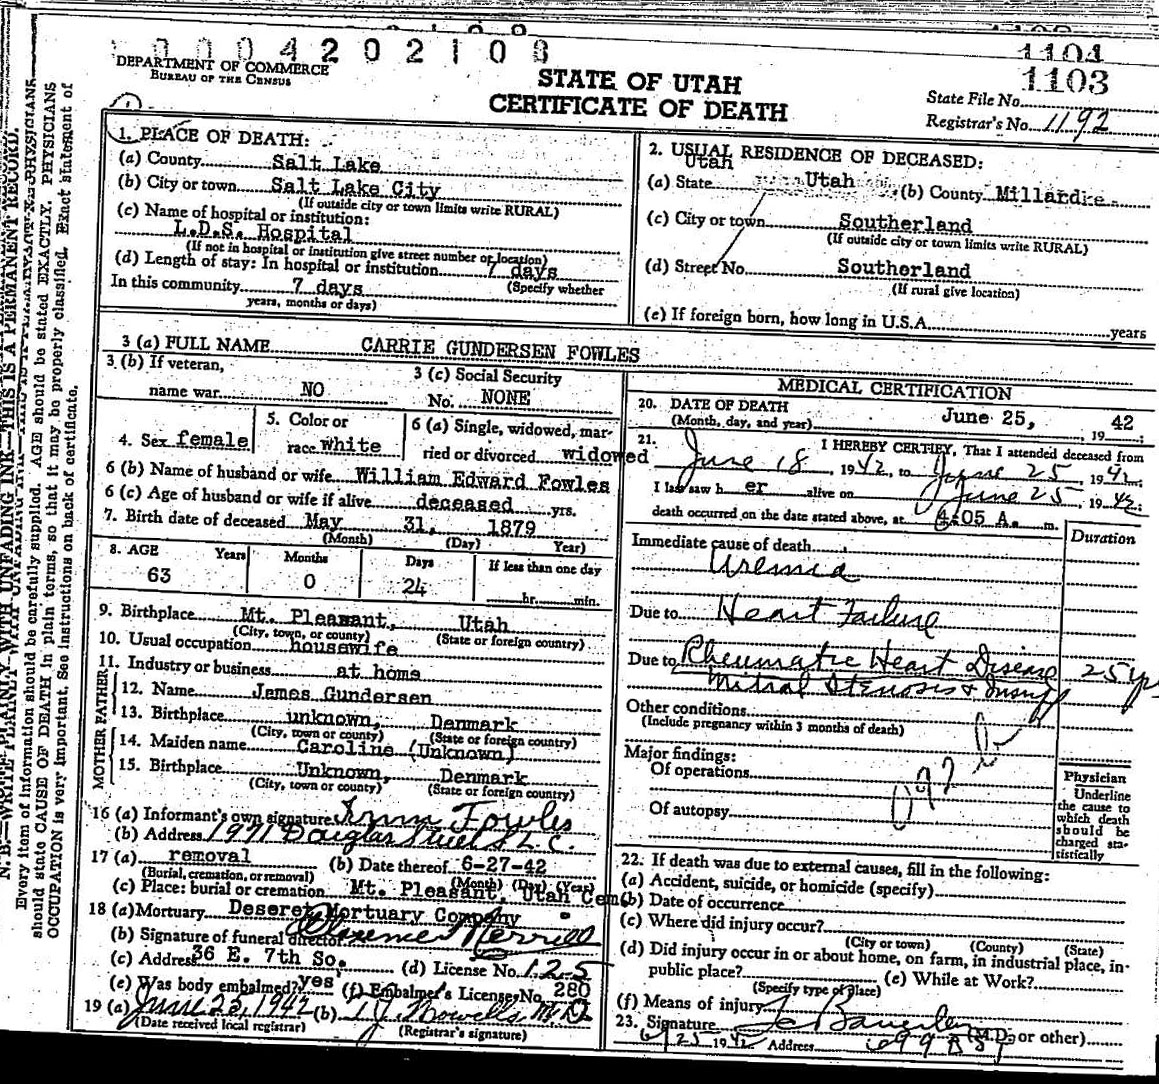 0004202108
1104
1103
DEPARTMENT OF COMMERCE
BUREAU OF THE CENSUS
STATE OF UTAH
CERTIFICATE OF DEATH
State File No.
Registrar's No. 1192
N. B.—WRITE PLAINLY WITH UNFADING INK—THIS IS A PERMANENT RECORD.
Every item of information should be carefully supplied. AGE should be stated EXACTLY. PHYSICIANS
should state CAUSE OF DEATH in plain terms, so that it may be properly classified. Exact statement of
OCCUPATION is very important. See instructions on back of certificate.
1. PLACE OF DEATH:
(a) County Salt Lake
(b) City or town Salt Lake City
(If outside city or town limits write RURAL)
(c) Name of hospital or institution:
L.D.S. Hospital
(If not in hospital or institution give street number or location)
(d) Length of stay: In hospital or institution 7 days
In this community 7 days (Specify whether
years, months or days)
2. USUAL RESIDENCE OF DECEASED:
Utah
(a) State Utah (b) County Millard
(c) City or town Southerland
(If outside city or town limits write RURAL)
(d) Street No. Southerland
(If rural give location)
(e) If foreign born, how long in U.S.A. years
3 (a) FULL NAME CARRIE GUNDERSEN FOWLES
3 (b) If veteran,
name war NO
3 (c) Social Security
No. NONE
4. Sex female
5. Color or
race White
6 (a) Single, widowed, mar-
ried or divorced widowed
6 (b) Name of husband or wife William Edward Fowles
6 (c) Age of husband or wife if alive deceased yrs.
7. Birth date of deceased May 31, 1879
(Month) (Day) Year)
8. AGE Years Months Days If less than one day
63 0 24 hr. min.
9. Birthplace Mt. Pleasant, Utah
(City, town, or county) (State or foreign country)
10. Usual occupation housewife
11. Industry or business at home
FATHER
12. Name James Gundersen
13. Birthplace unknown, Denmark
(City, town or county) (State or foreign country)
MOTHER
14. Maiden name Caroline (Unknown)
15. Birthplace Unknown, Denmark
(City, town or county) (State or foreign country)
16 (a) Informant's own signature Fowles
(b) Address 1971 Douglas Street S.L.C.
17 (a) removal (b) Date thereof 6-27-42
(Burial, cremation, or removal) (Month) (Day) (Year)
(c) Place: burial or cremation Mt. Pleasant, Utah Cem
18 (a) Mortuary Deseret Mortuary Company
(b) Signature of funeral director Merrill
(c) Address 36 E. 7th So. (d) License No. 125
(e) Was body embalmed? yes (f) Embalmer's License No. 280
19 (a) June 25, 1942 (b) M.D.
(Date received local registrar) (Registrar's signature)
MEDICAL CERTIFICATION
20. DATE OF DEATH June 25, 1942
(Month, day, and year)
21. I HEREBY CERTIFY, That I attended deceased from
June 18, 1942, to June 25, 1942
I last saw her alive on June 25, 1942
death occurred on the date stated above, at 4:05 A. m.
Duration
Immediate cause of death
Uremia
Due to Heart Failure
Due to Rheumatic Heart Disease 25 yr
Mitral Stenosis & Insuf
Other conditions
(Include pregnancy within 3 months of death)
Major findings:
Of operations
092 b
Of autopsy
Physician
Underline
the cause to
which death
should be
charged sta-
tistically
22. If death was due to external causes, fill in the following:
(a) Accident, suicide, or homicide (specify)
(b) Date of occurrence
(c) Where did injury occur?
(City or town) (County) (State)
(d) Did injury occur in or about home, on farm, in industrial place, in-
public place? (e) While at Work?
(Specify type of place)
(f) Means of injury
23. Signature (M.D. or other)
6/25 1942 Address